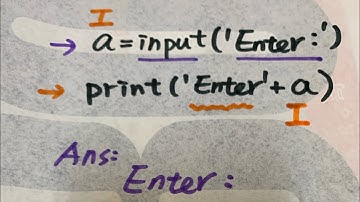 I
→ a=input('Enter:')
→ print('Enter'+a)
I
Ans:
Enter: